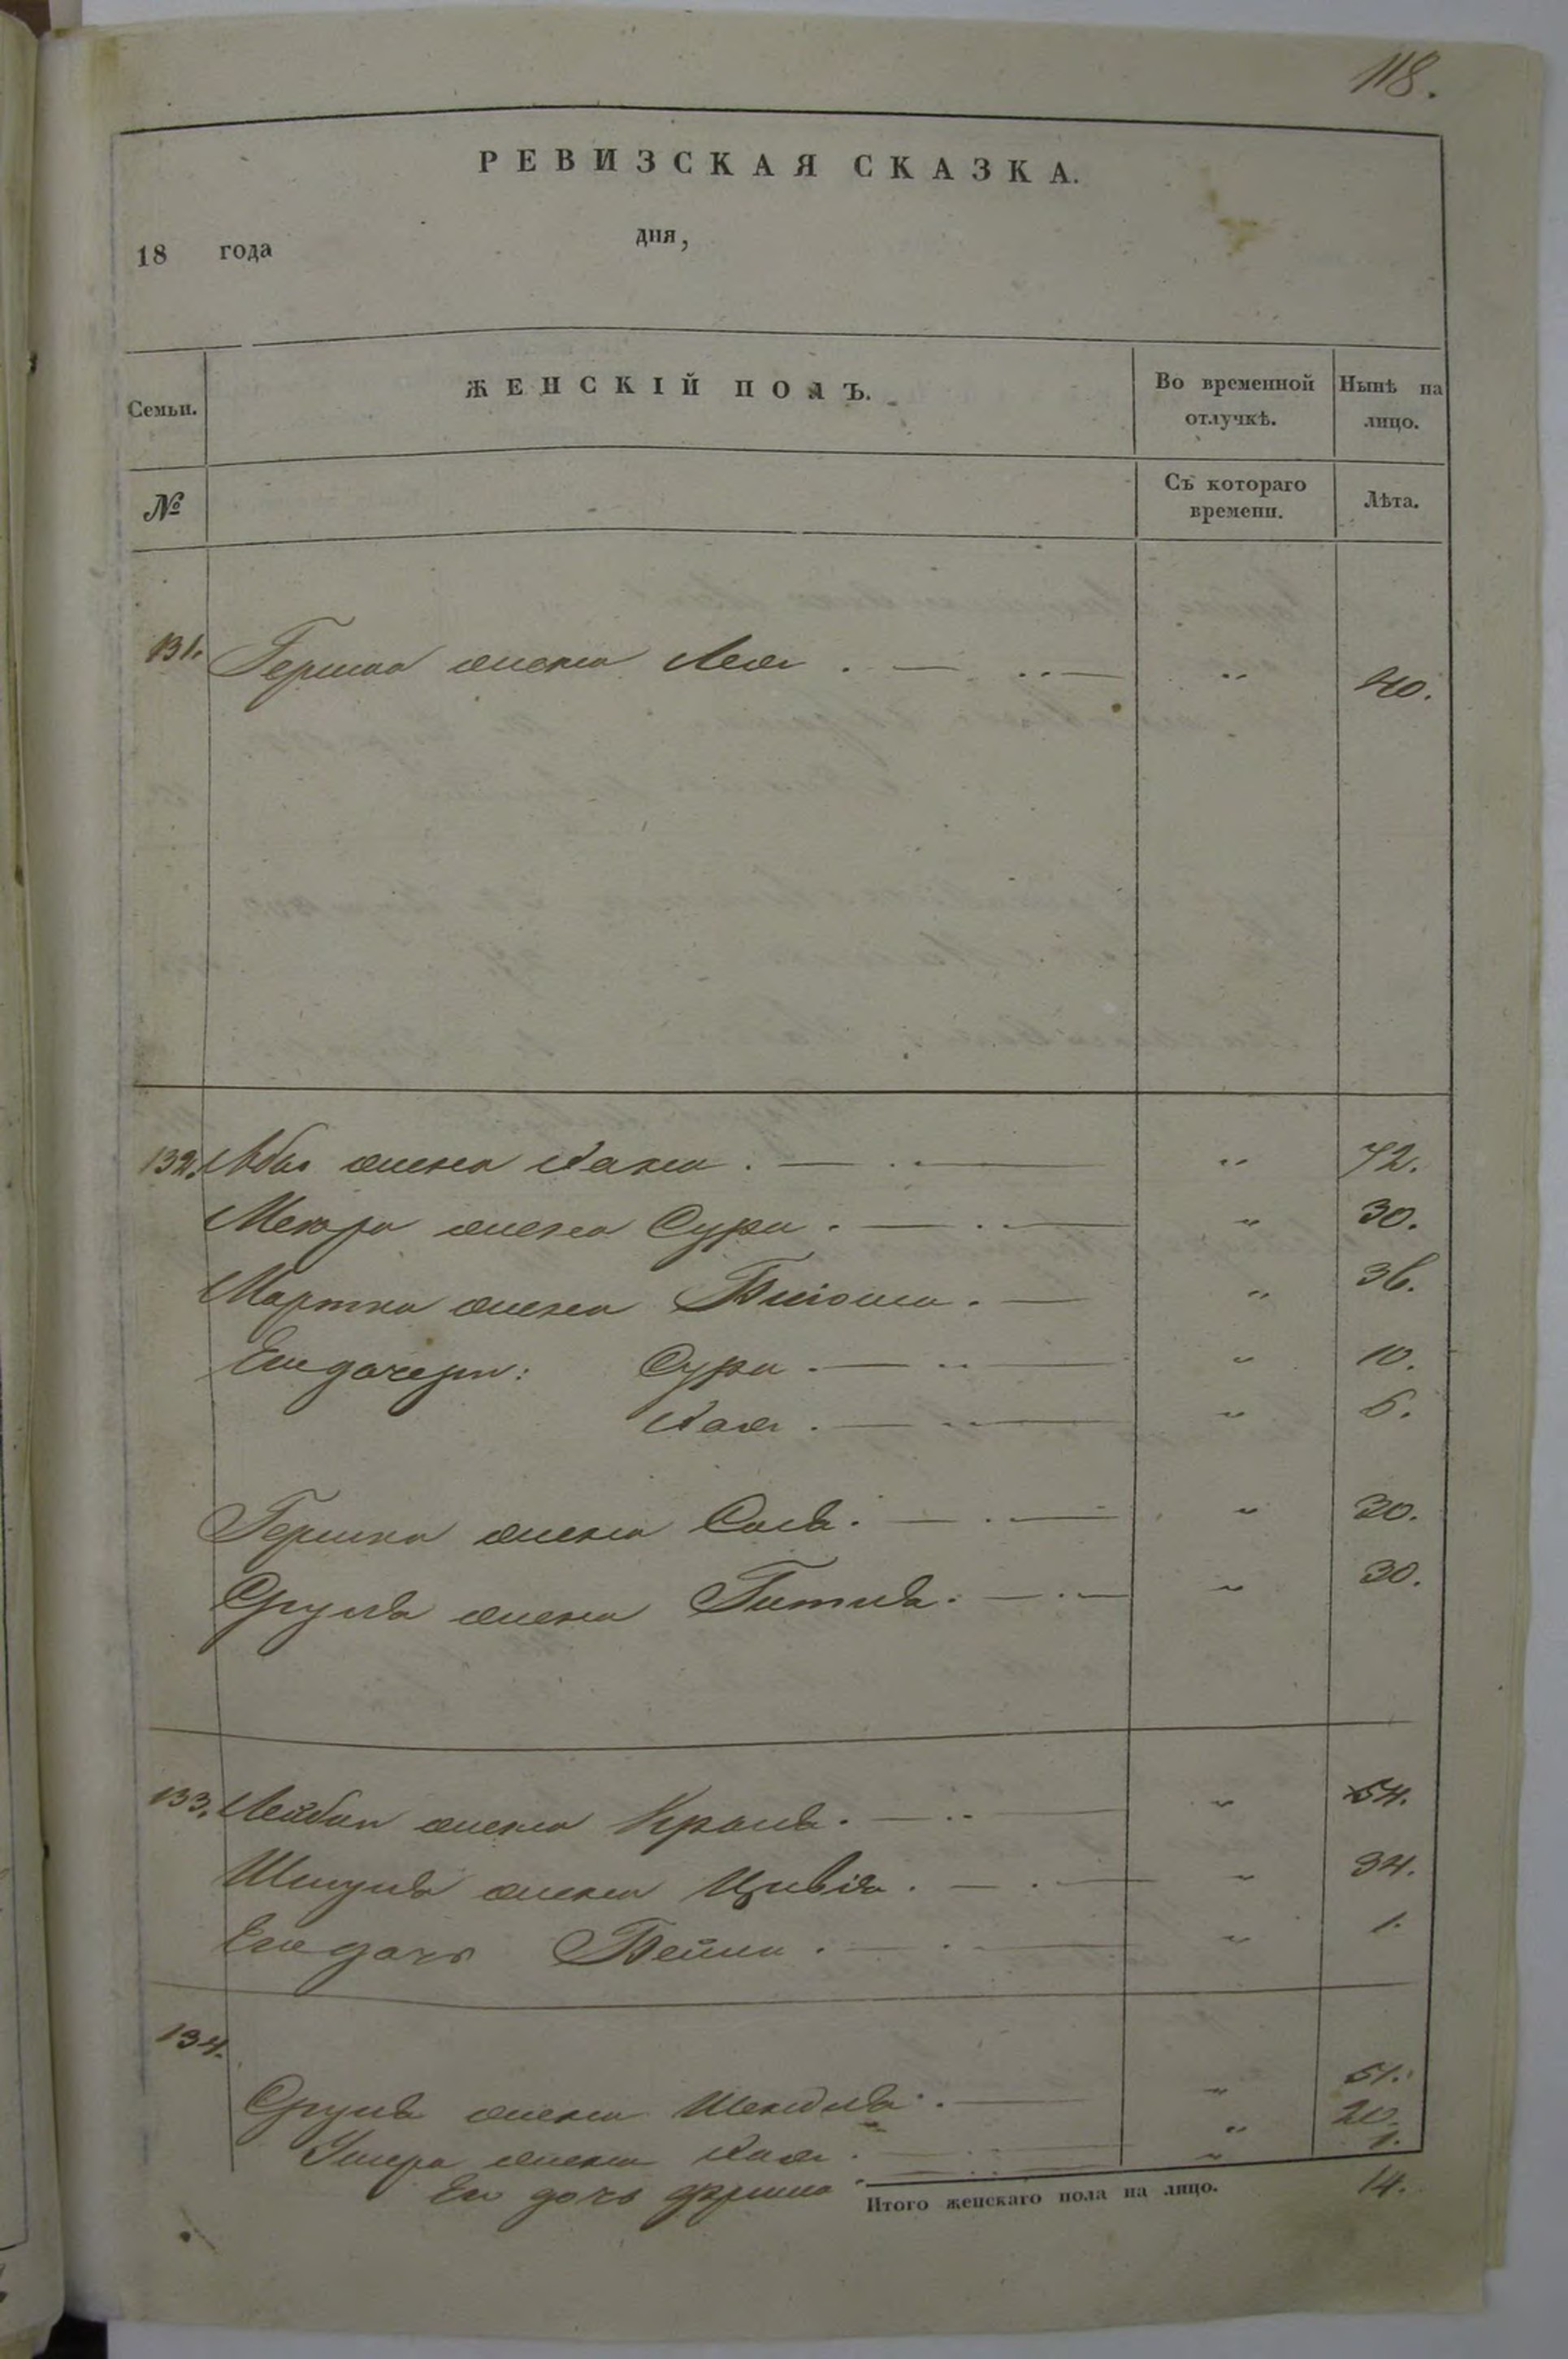 118.
РЕВИЗСКАЯ СКАЗКА.
18 года дня,
Семьи. ЖЕНСКІЙ ПОЛЪ. Во временной отлучкѣ. Нынѣ на лицо.
№ Съ котораго времени. Лѣта.
131. Гершка жена Лея . — .. — „ 40.
132. Абы жена Хана . — . — „ 72.
жена Сура . — . — „ 30.
Мортка жена . — „ 36.
Его дочери: Сура . — .. — „ 10.
Хая . — .. — „ 6.
Гершка жена Сося . — . — „ 30.
Сруля жена Гитля . — . — „ 30.
133. Лейбы жена Крейня . — .. — „ 54.
Шмуля жена Цивія . — . — „ 34.
Его дочь Бейла . — . — „ 1.
134.
Сруля жена . — „ 51.
жена Хая . — .. — „ 20.
Ея дочь „ 1.
Итого женскаго пола на лицо. 14.